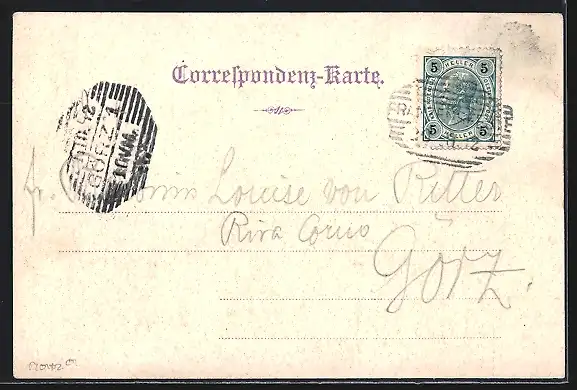 Correspondenz-Karte.
5 HELLER 5
5 HELLER 5
GÖRZ 1
Louise von Ritter
Riva Corno
Görz.